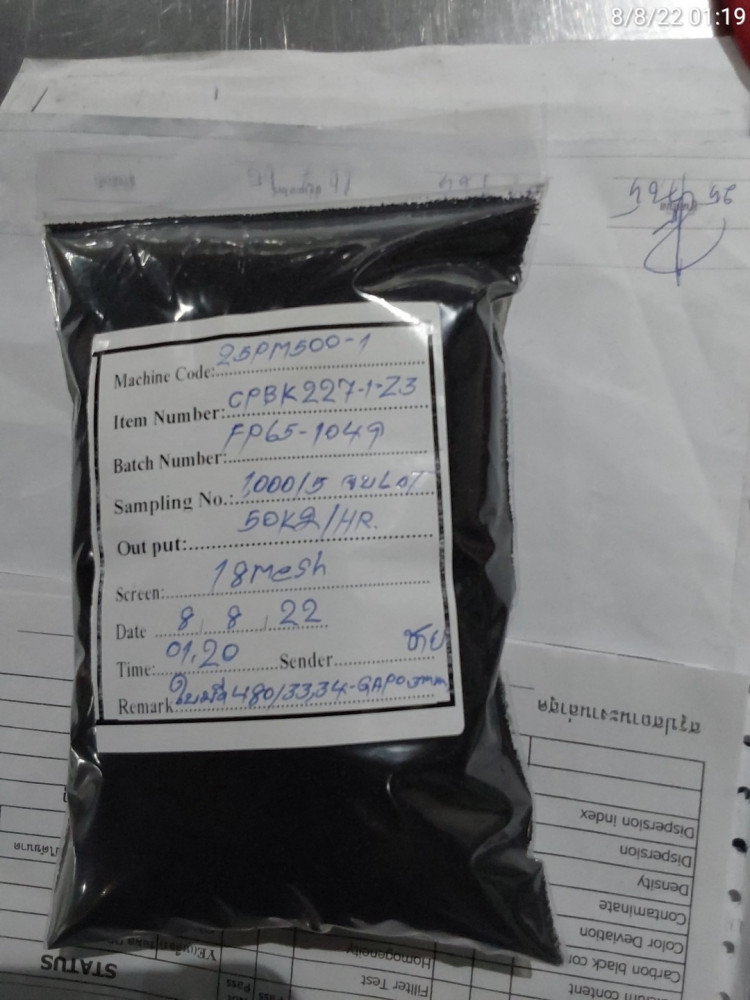 8/8/22 01:19
Machine Code: 25PM500-1
Item Number: CPBK227-1-Z3
Batch Number: FP65-1049
Sampling No.: 1,000/5 จบLOT
Out put: 50Kg/HR.
Screen: 18mesh
Date 8 8 22
Time: 01,20 Sender
Remark ใบมีด 480/33,34-GAP0.3mm
สรุปสถานะงานล่าสุด
Dispersion Index
Dispersion
Density
Contaminate
Color Deviation
Carbon black
content
Fillter Test
Homogeneity
STATUS
Pass
Pass